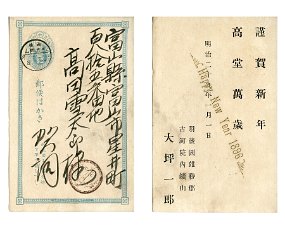 富山縣富山市星井町
百八拾五番地
高田雪太郎様
賀詞
郵便はかき
謹賀新年
高堂萬歳
明治二十 年一月一日
Happy New Year
羽後國雄勝郡
古河院内鑛山
大坪一郎